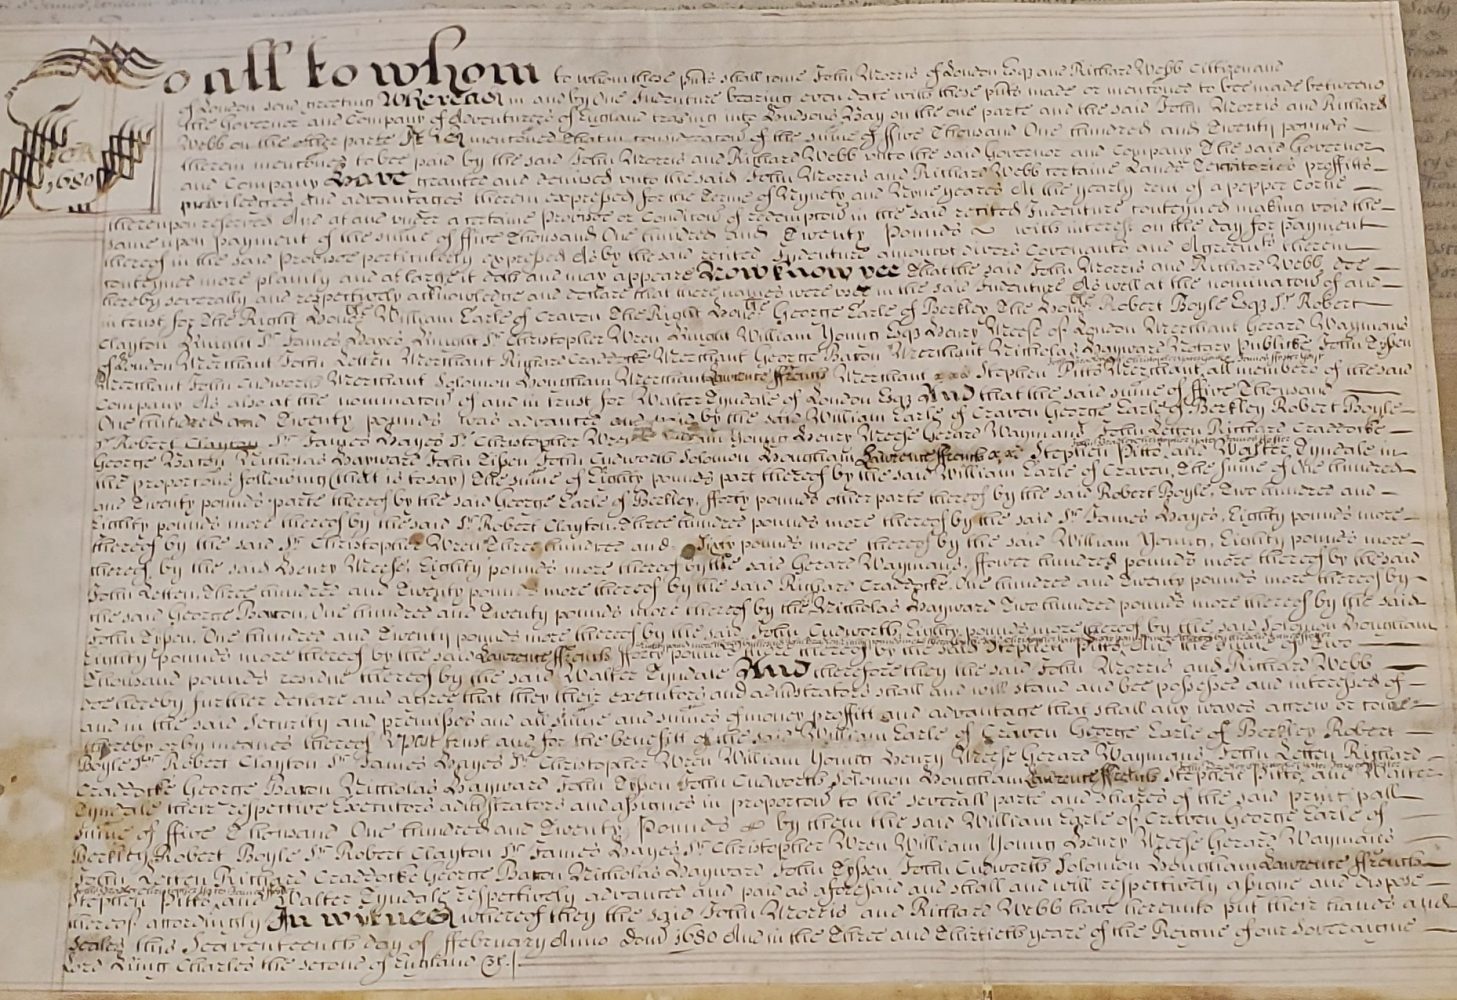 To all to whom to whom these pnts shall come John Morris of London Esqr and Richard Webb Cittizen and
of London send greeting Whereas in and by One Indenture bearing even date with these pnts made or mentoned to bee made betweene
the Governor and Company of Adventurers of England trading into Hudsons Bay on the one parte and the said John Morris and Richard
Webb on the other parte It is mentoned that in consideraton of the summe of ffive Thousand One hundred and Twenty pounds
therein mentoned to bee paid by the said John Morris and Richard Webb unto the said Governor and Company The said Governor
1680
and Company Have granted and demised unto the said John Morris and Richard Webb certaine Lands Territories proffitts
priviledges and advantages therein expressed for the Terme of Nynety and Nyne yeares At the yearly rent of a pepper Corne
thereupon reserved And at and under a certaine Provisoe or Conditon of redempton in the said recited Indenture conteyned making void the
same upon payment of the summe of ffive Thousand One hundred and Twenty Pounds with interest on the day for payment
thereof in the said Provisoe perticulerly expressed As by the said recited Indenture amongst divers Covenants and Agreemts therein
conteyned more plainly and at large it doth and may appeare Now know yee that the said John Morris and Richard Webb doe
hereby severally and respectively acknowledge and declare that their names were used in the said Indenture As well at the nominaton of and
in trust for The Right Honoble William Earle of Craven The Right Honoble George Earle of Berkley The Honoble Robert Boyle Esqr Sr Robert
Clayton Knight Sr James Hayes Knight Sr Christopher Wren Knight William Young Esqr Henry Meese of London Merchant Gerard Waymans
of London Merchant John Letten Merchant Richard Craddocke Merchant George Baton Merchant Nicholas Hayward Notary Publicke John Tysen
Merchant John Cudworth Merchant Solomon Bongham Merchant Lawrence ffrench Merchant Stephen Pitts Merchant all members of the said
Company As also at the nominaton of and in trust for Walter Tyndale of London Esqr And that the said summe of ffive Thousand
One hundred and Twenty pounds was advanced and paid by the said William Earle of Craven George Earle of Berkley Robert Boyle
Sr Robert Clayton Sr James Hayes Sr Christopher Wren William Young Henry Meese Gerard Waymans John Letten Richard Craddocke
George Baton Nicholas Hayward John Tysen John Cudworth Solomon Bongham Lawrence ffrench Stephen Pitts and Walter Tyndale in
the proportons following (that is to say) The summe of Eighty pounds part thereof by the said William Earle of Craven, The summe of One hundred
and Twenty pounds parte thereof by the said George Earle of Berkley, fforty pounds other parte thereof by the said Robert Boyle, Two hundred and
Eighty pounds more thereof by the said Sr Robert Clayton, Three hundred pounds more thereof by the said Sr James Hayes, Eighty pounds more
thereof by the said Sr Christopher Wren Three hundred and Sixty pounds more thereof by the said William Young, Eighty pounds more
thereof by the said Henry Meese, Eighty pounds more thereof by the said Gerard Waymans, ffower hundred pounds more thereof by the said
John Letten, Three hundred and Twenty pounds more thereof by the said Richard Craddocke, One hundred and Twenty pounds more thereof by
the said George Baton, One hundred and Twenty pounds more thereof by the Nicholas Hayward Two hundred pounds more thereof by the said
John Tysen, One hundred and Twenty pounds more thereof by the said John Cudworth Eighty pounds more thereof by the said Solomon Bongham
Eighty pounds more thereof by the said Lawrence ffrench fforty pounds more thereof by the said Stephen Pitts And the summe of Two
Thousand pounds residue thereof by the said Walter Tyndale And therefore they the said John Morris and Richard Webb
doe hereby further declare and agree that they their executors and administrators shall and will stand and bee possessed and interessed of
and in the said Security and premisses and all summe and summes of money proffitt and advantage that shall any wayes accrew or come
thereby or by meanes thereof Upon trust and for the benefitt of the said William Earle of Craven George Earle of Berkley Robert
Boyle Sr Robert Clayton Sr James Hayes Sr Christopher Wren William Young Henry Meese Gerard Waymans John Letten Richard
Craddocke George Baton Nicholas Hayward John Tysen John Cudworth Solomon Bongham Lawrence ffrench Stephen Pitts and Walter
Tyndale their respective Executors administrators and assignes in proporton to the severall parts and shares of the said principall
summe of ffive Thousand One hundred and Twenty Pounds by them the said William Earle of Craven George Earle of
Berkley Robert Boyle Sr Robert Clayton Sr James Hayes Sr Christopher Wren William Young Henry Meese Gerard Waymans
John Letten Richard Craddocke George Baton Nicholas Hayward John Tysen John Cudworth Solomon Bongham Lawrence ffrench
Stephen Pitts and Walter Tyndale respectively advanced and paid as aforesaid and shall and will respectively assigne and dispose
thereof accordingly In witnes whereof they the said John Morris and Richard Webb have hereunto put their hands and
Seales this Seaventeenth day of ffebruary Anno Dom 1680 And in the Three and Thirtieth yeare of the Reigne of our Soveraigne
Lord King Charles the second of England &c.